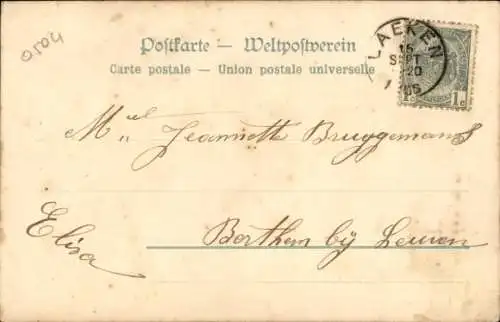 0504
Postkarte — Weltpostverein
Carte postale — Union postale universelle
LAEKEN
15
SEPT
20
05
1c 1c
Melle Jeannette Bruggemans
Elisa
Berthem bij Leuven